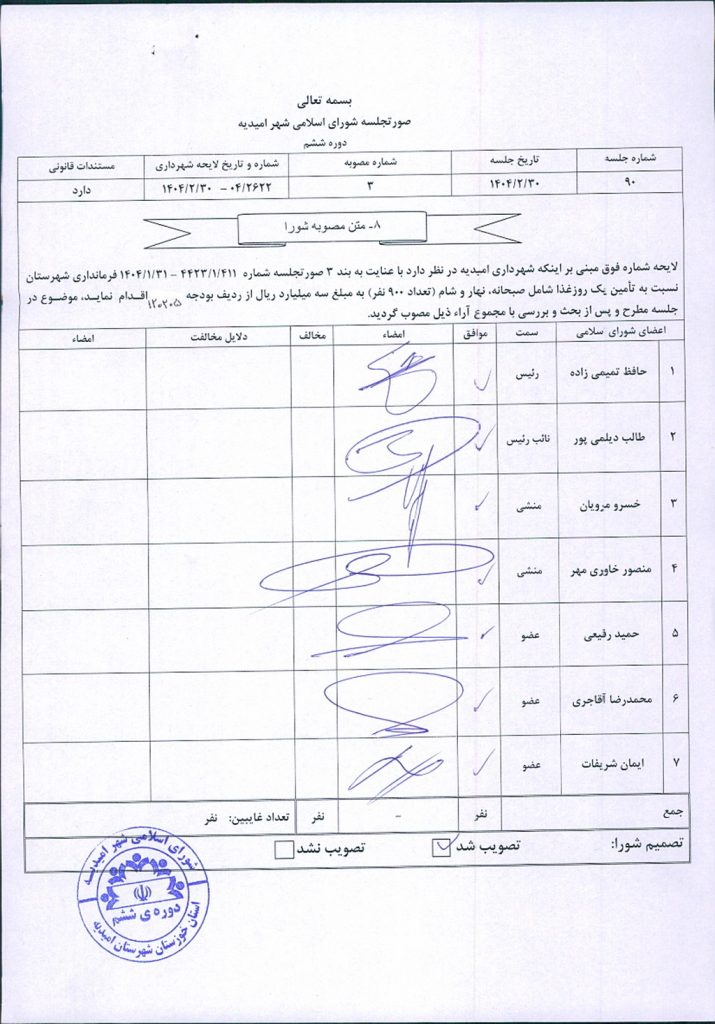 بسمه تعالی
صورتجلسه شورای اسلامی شهر امیدیه
دوره ششم
شماره جلسه تاریخ جلسه شماره مصوبه شماره و تاریخ لایحه شهرداری مستندات قانونی
۹۰ ۱۴۰۴/۲/۳۰ ۳ ۰۴/۲۶۲۲ – ۱۴۰۴/۲/۳۰ دارد
۸ـ متن مصوبه شورا
لایحه شماره فوق مبنی بر اینکه شهرداری امیدیه در نظر دارد با عنایت به بند ۳ صورتجلسه شماره ۴۴۲۳/۱/۴۱۱ – ۱۴۰۴/۱/۳۱ فرمانداری شهرستان
نسبت به تأمین یک روزغذا شامل صبحانه، نهار و شام (تعداد ۹۰۰ نفر) به مبلغ سه میلیارد ریال از ردیف بودجه ۱۲۰۲۰۵ اقدام نماید، موضوع در
جلسه مطرح و پس از بحث و بررسی با مجموع آراء ذیل مصوب گردید.
اعضای شورای سلامی سمت موافق امضاء مخالف دلایل مخالفت امضاء
۱ حافظ تمیمی زاده رئیس
۲ طالب دیلمی پور نائب رئیس
۳ خسرو مرویان منشی
۴ منصور خاوری مهر منشی
۵ حمید رقیعی عضو
۶ محمدرضا آقاجری عضو
۷ ایمان شریفات عضو
جمع نفر - نفر تعداد غایبین: نفر
تصمیم شورا: تصویب شد تصویب نشد
شورای اسلامی شهر امیدیه
دوره ی ششم
استان خوزستان شهرستان امیدیه